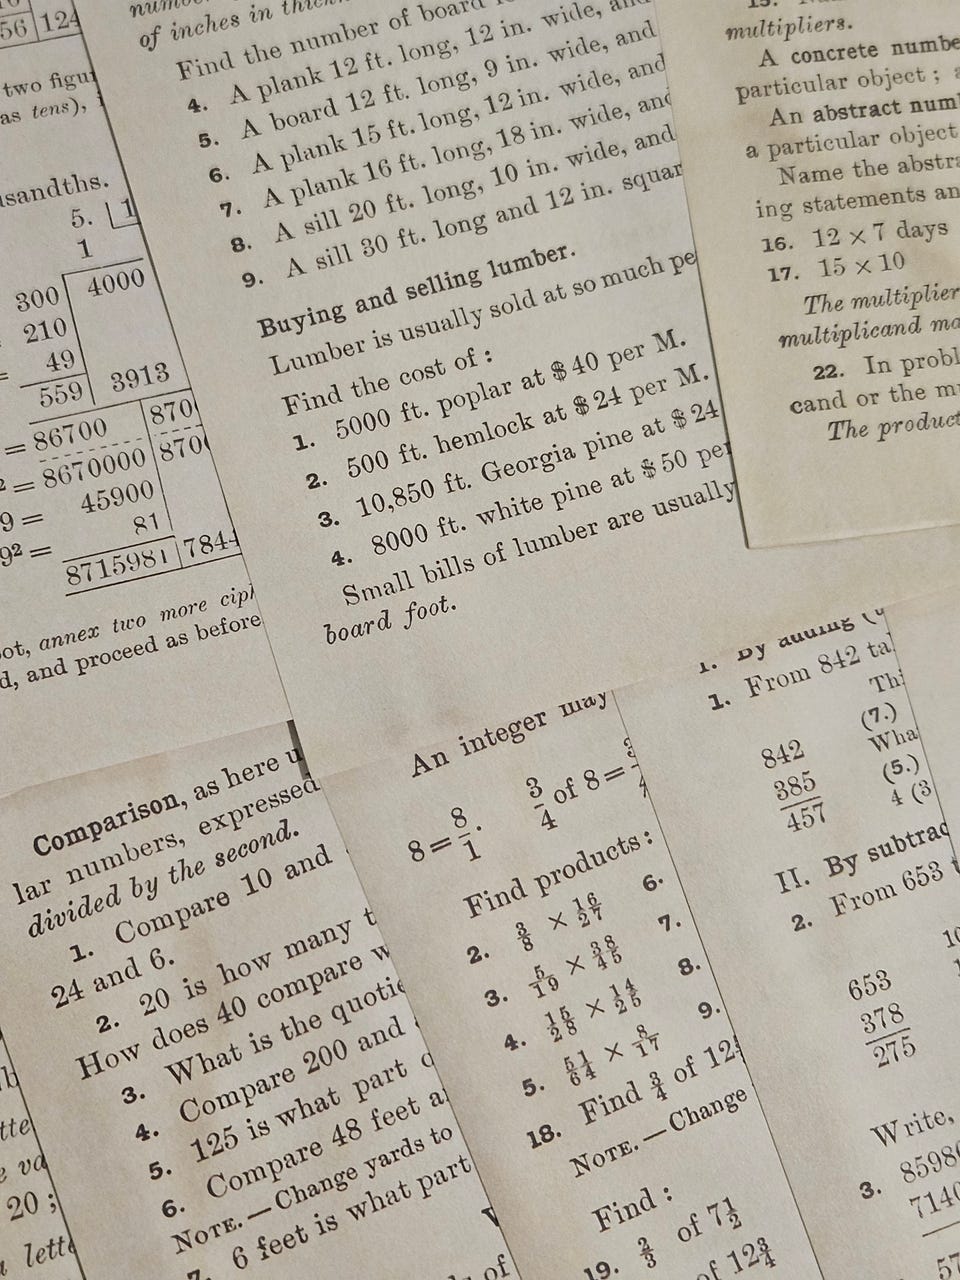 56 124
two figu
as tens),
usandths.
5. 1
1
300 4000
210
49
559 3913
= 86700 870
= 8670000 870
9 = 45900
9² = 81
8715981 7844
annex two more
d, and proceed as before
of inches in
Find the number of board
4. A plank 12 ft. long, 12 in. wide, and
5. A board 12 ft. long, 9 in. wide, and
6. A plank 15 ft. long, 12 in. wide, and
7. A plank 16 ft. long, 18 in. wide, and
8. A sill 20 ft. long, 10 in. wide, and
9. A sill 30 ft. long and 12 in. squar
Buying and selling lumber.
Lumber is usually sold at so much pe
Find the cost of :
1. 5000 ft. poplar at $40 per M.
2. 500 ft. hemlock at $24 per M.
3. 10,850 ft. Georgia pine at $24
4. 8000 ft. white pine at $50 per
Small bills of lumber are usually
board foot.
multipliers.
A concrete numbe
particular object ; a
An abstract num
a particular object
Name the abstra
ing statements an
16. 12 × 7 days
17. 15 × 10
The multiplier
multiplicand ma
22. In probl
cand or the mu
The product
Comparison, as here u
lar numbers, expressed
divided by the second.
1. Compare 10 and
24 and 6.
2. 20 is how many t
How does 40 compare w
3. What is the quotie
4. Compare 200 and
5. 125 is what part o
6. Compare 48 feet a
NOTE.—Change yards to
7. 6 feet is what part
tte
e va
20 ;
lette
An integer may
8 = 8/1. 3/4 of 8 =
Find products :
2. 3/8 × 16/27 6.
3. 5/19 × 38/45 7.
4. 15/28 × 14/25 8.
5. 51/64 × 8/17 9.
18. Find 3/4 of 12
NOTE.—Change
Find :
19. 2/3 of 7 1/2
of 12 3/4
I. By adding
1. From 842 ta
Thi
(7.)
842 Wha
385 (5.)
457 4 (3
II. By subtrac
2. From 653 t
10
653
378
275
Write,
3. 8598
7140
57